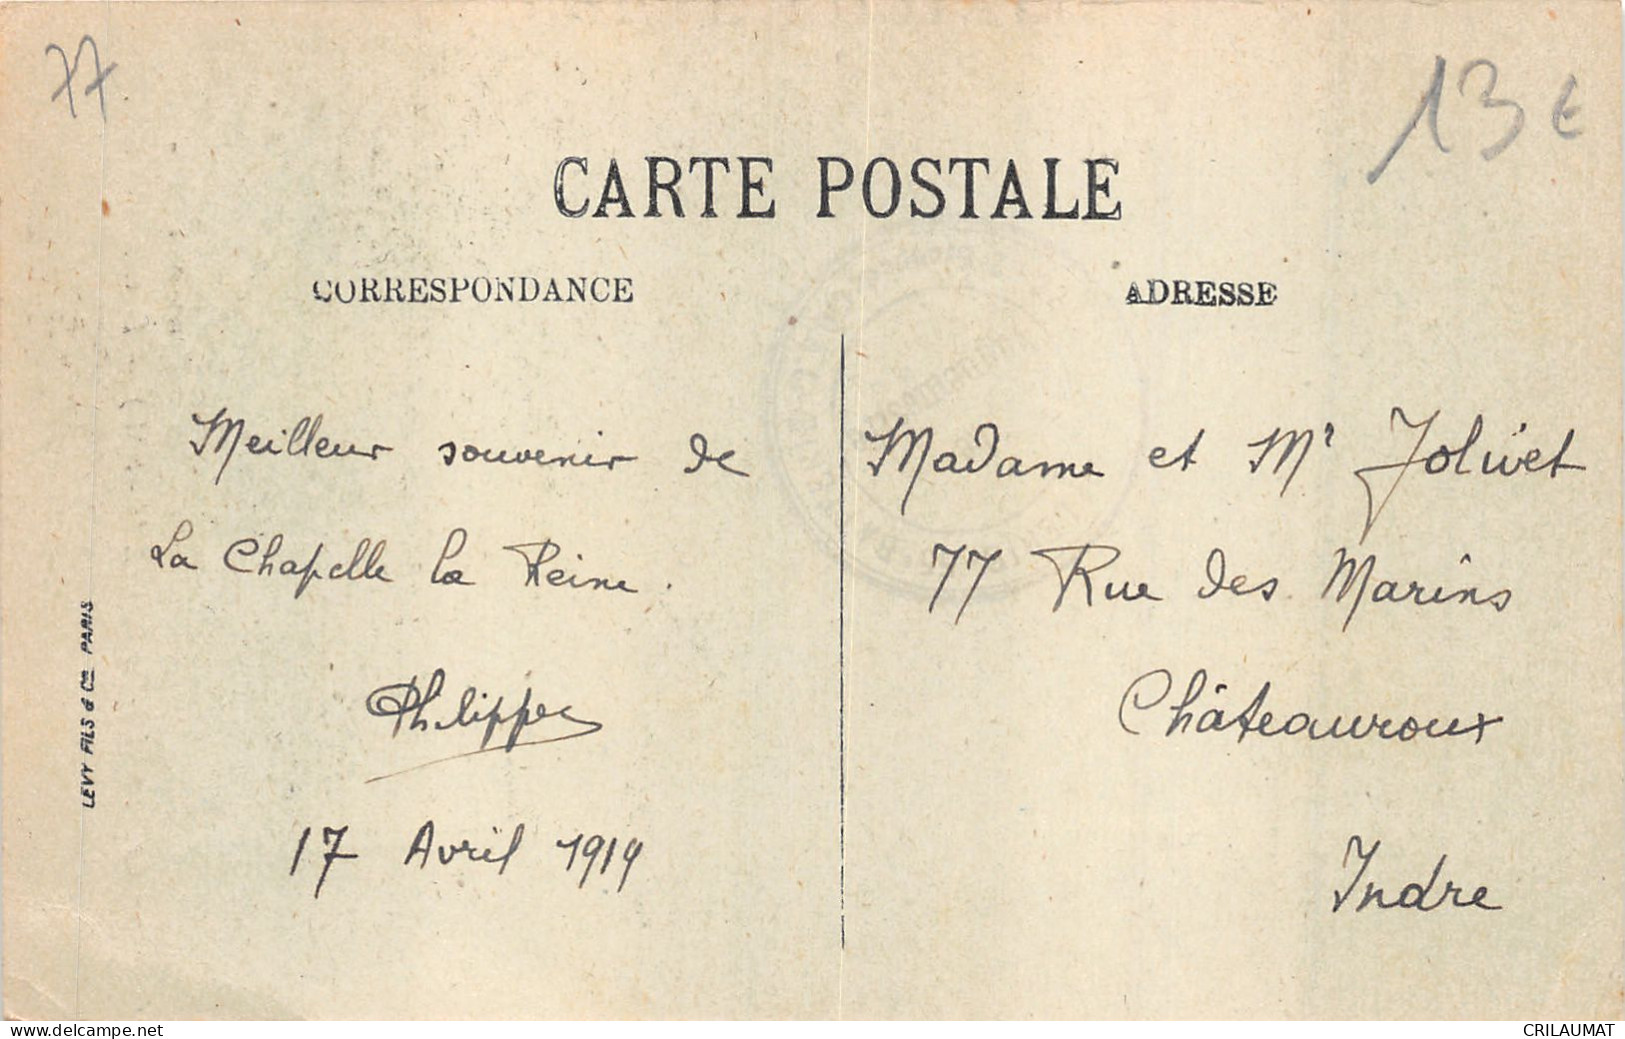 77
13 €
CARTE POSTALE
CORRESPONDANCE
ADRESSE
Meilleur souvenir de
La Chapelle la Reine.
Philippe
17 Avril 1919
Madame et Mr Jolivet
77 Rue des Marins
Châteauroux
Indre
LEVY FILS & Cie PARIS
www.delcampe.net
CRILAUMAT